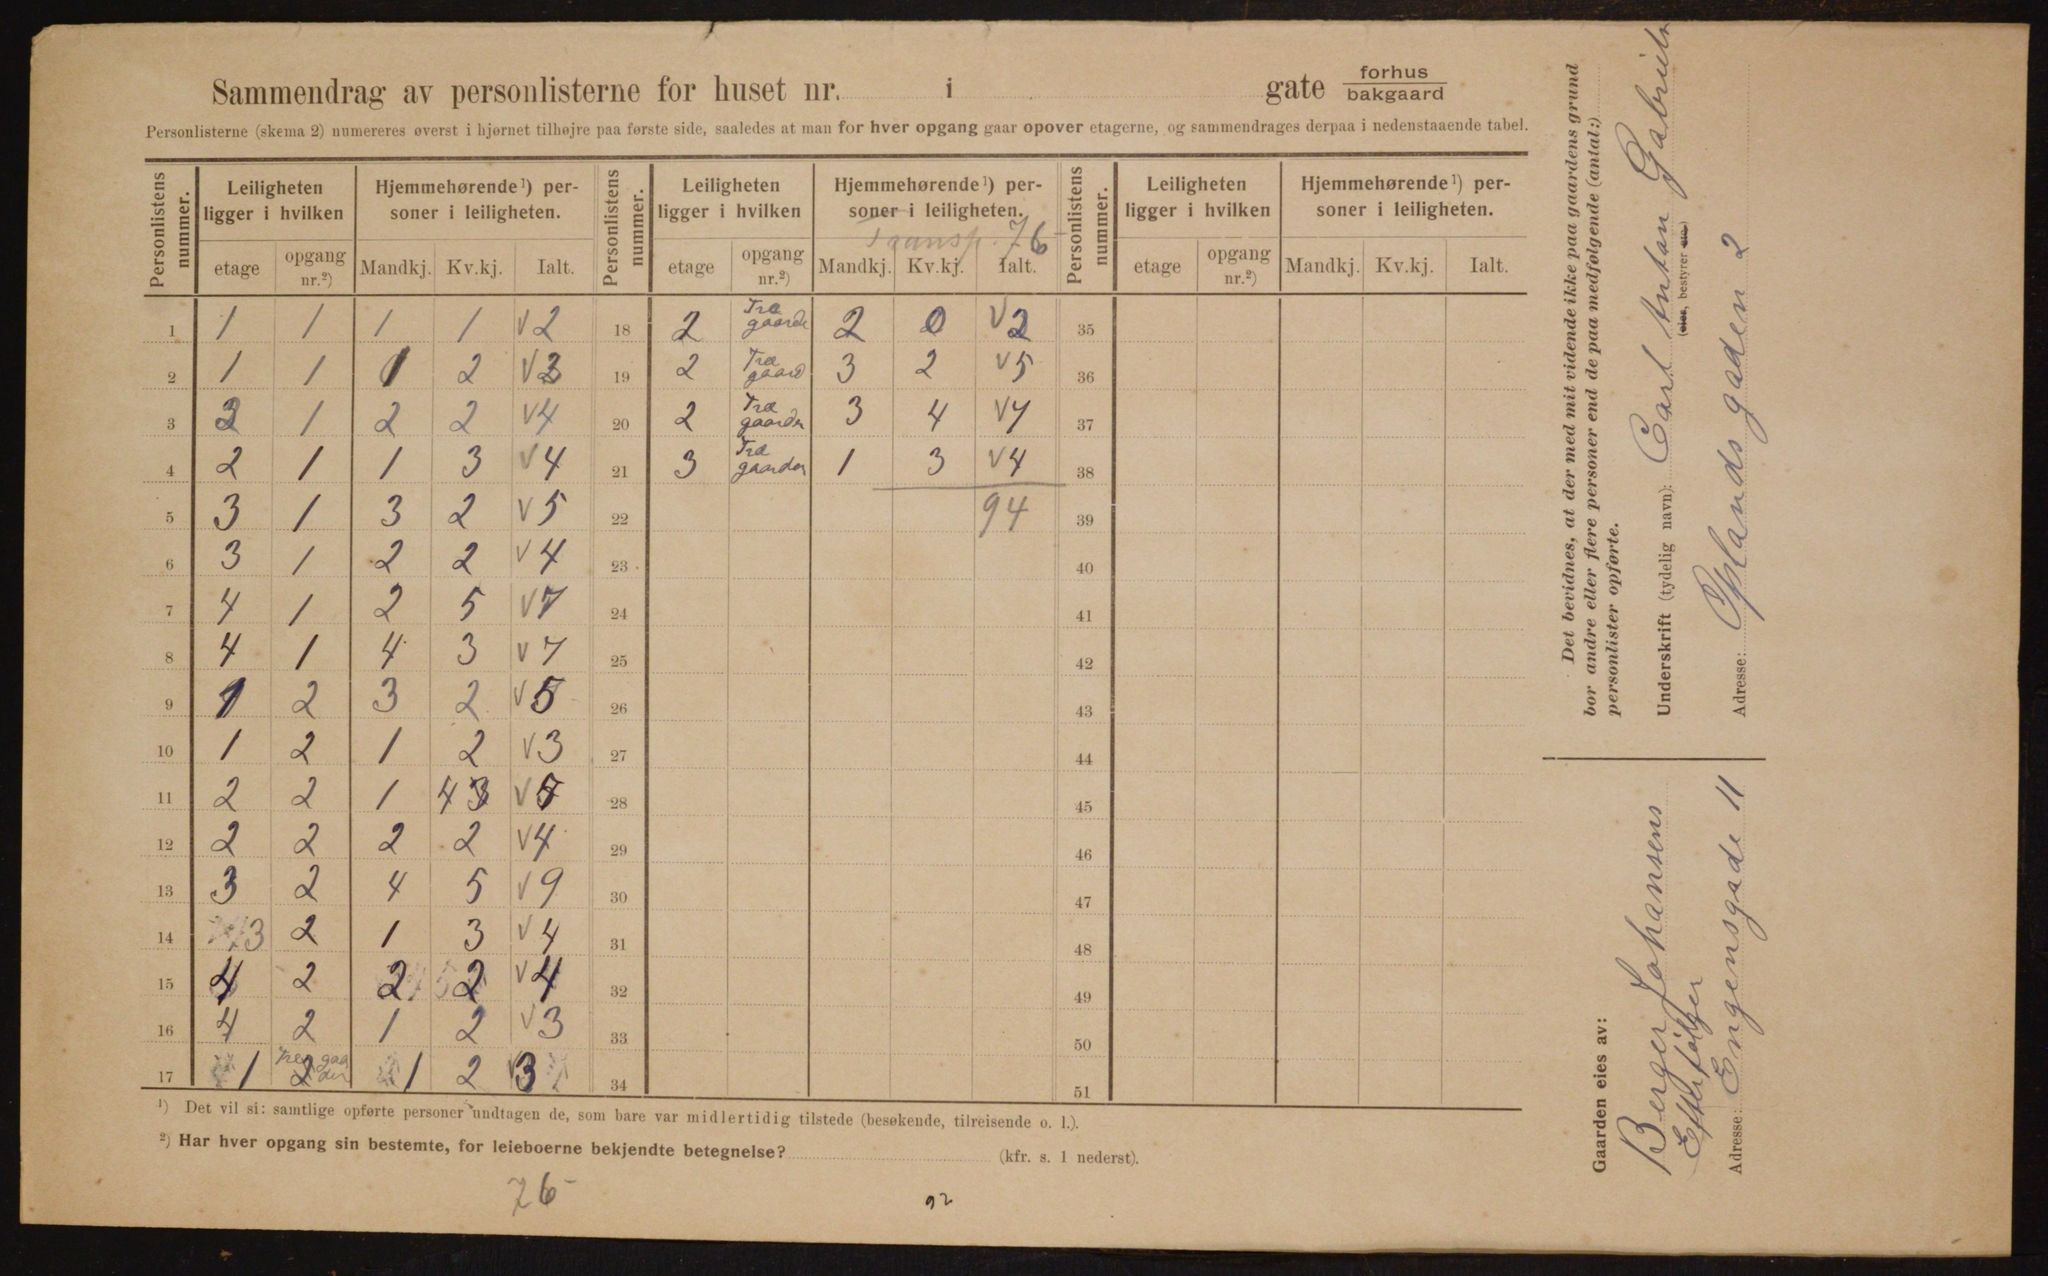 Sammendrag av personlisterne for huset nr. i gate forhus bakgaard
Personlisterne (skema 2) numereres øverst i hjørnet tilhøjre paa første side, saaledes at man for hver opgang gaar opover etagerne, og sammendrages derpaa i nedenstaaende tabel.
Personlistens nummer. Leiligheten ligger i hvilken Hjemmehørende¹) personer i leiligheten. Personlistens nummer. Leiligheten ligger i hvilken Hjemmehørende¹) personer i leiligheten. Personlistens nummer. Leiligheten ligger i hvilken Hjemmehørende¹) personer i leiligheten.
Transp. 76
etage opgang nr.²) Mandkj. Kv.kj. Ialt. etage opgang nr.²) Mandkj. Kv.kj. Ialt. etage opgang nr.²) Mandkj. Kv.kj. Ialt.
1 1 1 1 1 V 2 18 2 Træ gaarde 2 0 V 2 35
2 1 1 1 2 V 3 19 2 Træ gaard 3 2 V 5 36
3 2 1 2 2 V 4 20 2 Træ gaarden 3 4 V 7 37
4 2 1 1 3 V 4 21 3 Træ gaarden 1 3 V 4 38
5 3 1 3 2 V 5 22 94 39
6 3 1 2 2 V 4 23 40
7 4 1 2 5 V 7 24 41
8 4 1 4 3 V 7 25 42
9 1 2 3 2 V 5 26 43
10 1 2 1 2 V 3 27 44
11 2 2 1 4 V 5 28 45
12 2 2 2 2 V 4 29 46
13 3 2 4 5 V 9 30 47
14 3 2 1 3 V 4 31 48
15 4 2 2 2 V 4 32 49
16 4 2 1 2 V 3 33 50
17 1 2 1 2 V 3 34 51
¹) Det vil si: samtlige opførte personer undtagen de, som bare var midlertidig tilstede (besøkende, tilreisende o. l.).
²) Har hver opgang sin bestemte, for leieboerne bekjendte betegnelse? (kfr. s. 1 nederst).
76
92
Det bevidnes, at der med mit vidende ikke paa gaardens grund
bor andre eller flere personer end de paa medfølgende (antal:)
personlister opførte.
Underskrift (tydelig navn): Carl Anton
(eier, bestyrer etc)
Adresse: Oplandsgaden 2
Gaarden eies av:
Berger Johansens
Efterfölger
Adresse: Engensgade 11